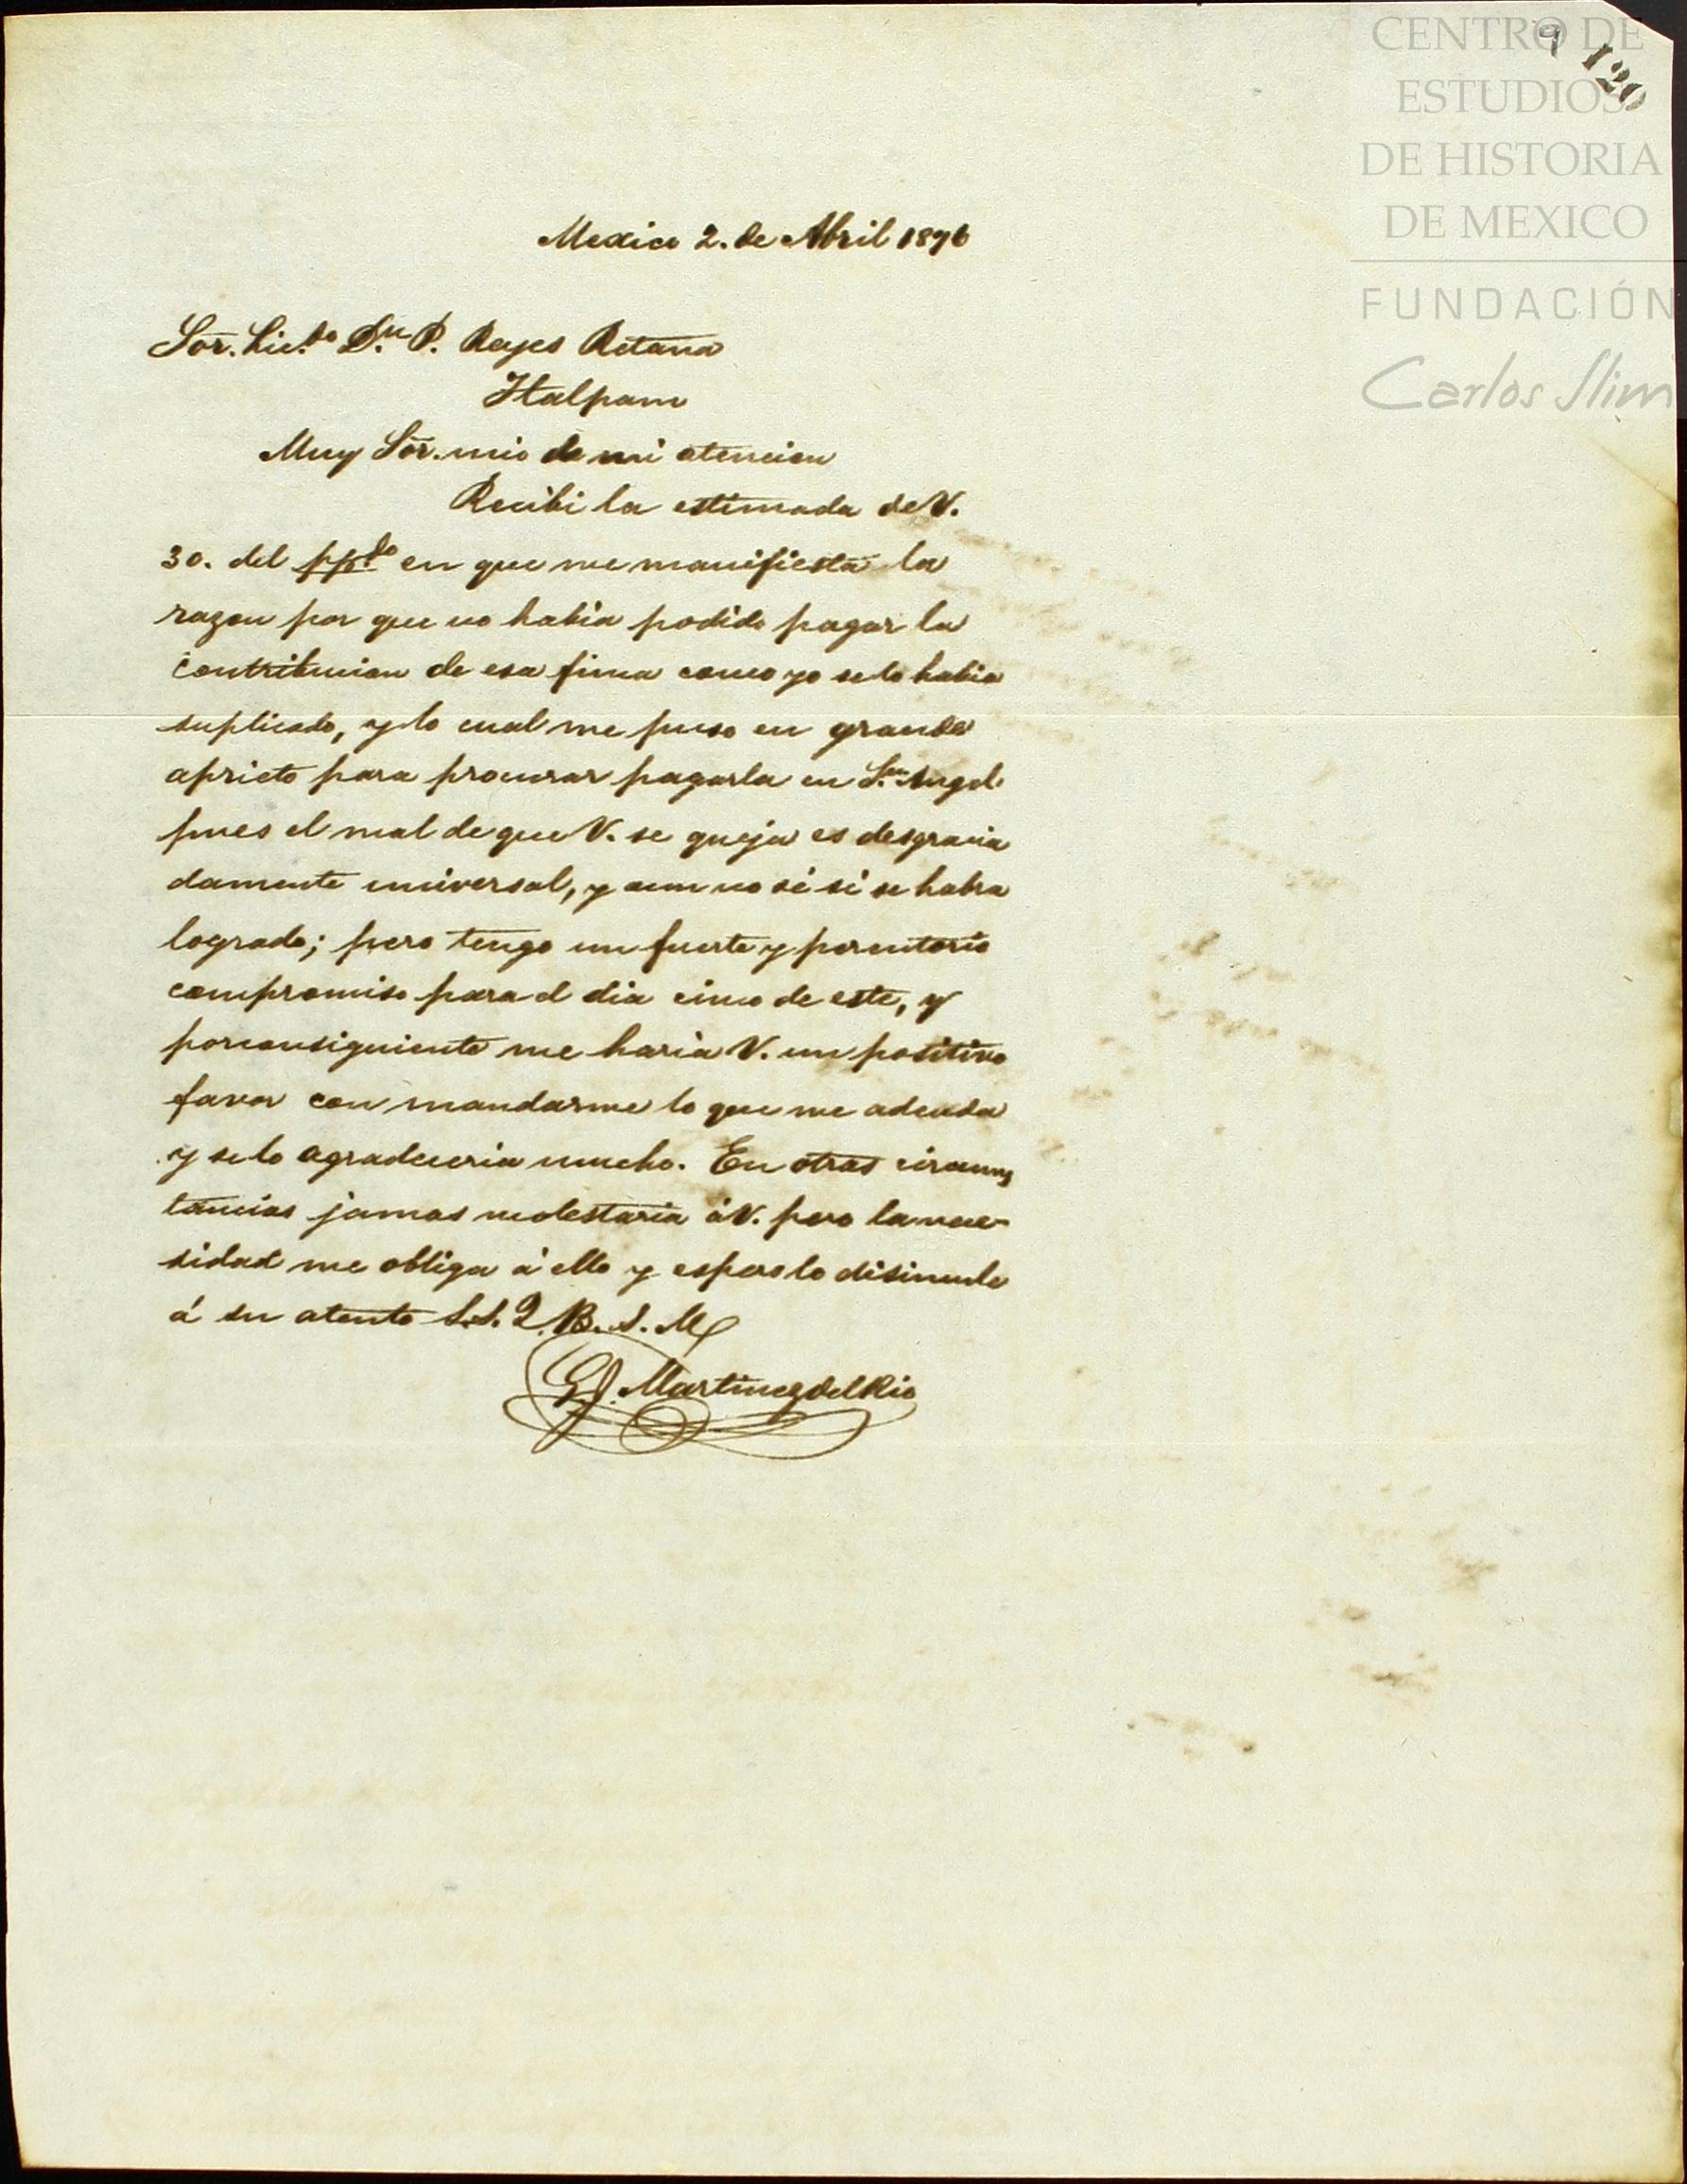 CENTRO DE
ESTUDIOS
DE HISTORIA
DE MEXICO
FUNDACIÓN
Carlos Slim
9 120
Mexico 2. de Abril 1876
Sor. Lic.do D.n P. Reyes Retana
Tlalpam
Muy Sor. mio de mi atencion
Recibi la estimada de V.
30. del ppdo en que me manifiesta la
razon por que no habia podido pagar la
contribucion de esa finca como yo se lo habia
suplicado, y lo cual me puso en grande
aprieto para procurar pagarla en S.n Angel
pues el mal de que V. se queja es desgracia
damente universal, y aun no sé si se habra
logrado; pero tengo un fuerte y perentorio
compromiso para el dia cinco de este, y
porconsiguiente me haria V. un positivo
favor con mandarme lo que me adeuda
y se lo agradeceria mucho. En otras circuns
tancias jamas molestaria á V. pero la nece-
sidad me obliga á ello y espero lo disimule
á su atento S.S. Q. B. S. M
Martinez del Rio